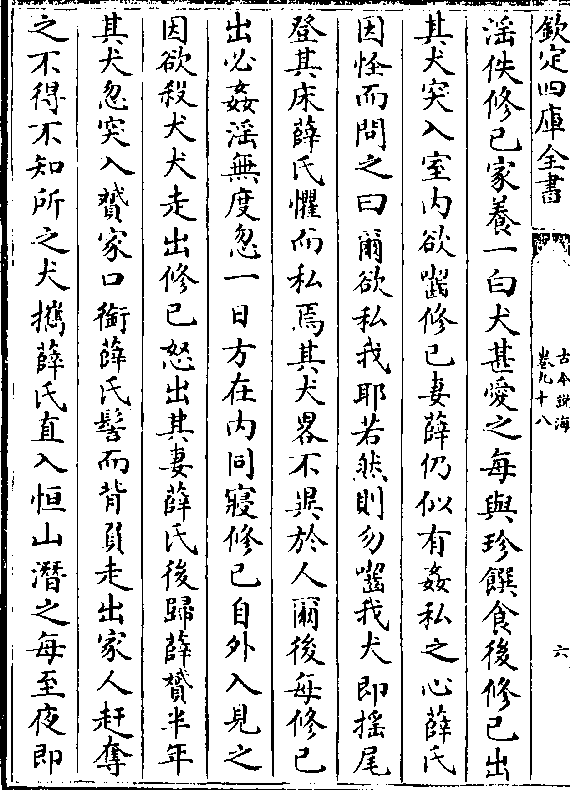 欽定四庫全書
古今說海
卷九十八
六
滛佚修已家養一白犬甚愛之每與珍饌食後修已出
其犬突入室内欲嚙修已妻薛仍似有姦私之心薛氏
因怪而問之曰爾欲私我耶若然則勿嚙我犬即摇尾
登其床薛氏懼而私焉其犬畧不異於人爾後每修已
出必姦滛無度忽一日方在内同寢修已自外入見之
因欲殺犬犬走出修已怒出其妻薛氏後歸薛贇半年
其犬忽突入贇家口銜薛氏髻而背負走出家人赶奪
之不得不知所之犬攜薛氏直入恒山潛之每至夜即